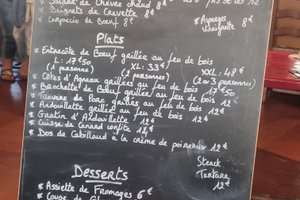 * de Chèvre chaud 8€
* Beignets de Crevette 8€
* Carpaccio de Boeuf 8€
* Asperges Vinaigrette 8€
Plats
* Entrecôte de Boeuf grillée au feu de bois
L : 17€50 XL : 33€ XXL : 48€
(1 personne) (2 personnes) (2 ou 3 personnes)
* Côtes d'Agneau grillées au feu de bois 17€50
* Brochette de Boeuf grillée au feu de bois 12€
* de Porc grillée au feu de bois 12€
* Andouillette grillée au feu de bois 12€
* Gratin d'Andouillette 12€
* Cuisse de Canard confite 12€
* Dos de Cabillaud à la crème de 12€
Steack
Tartare
12€
Desserts
* Assiette de Fromages 6€
* Coupe de